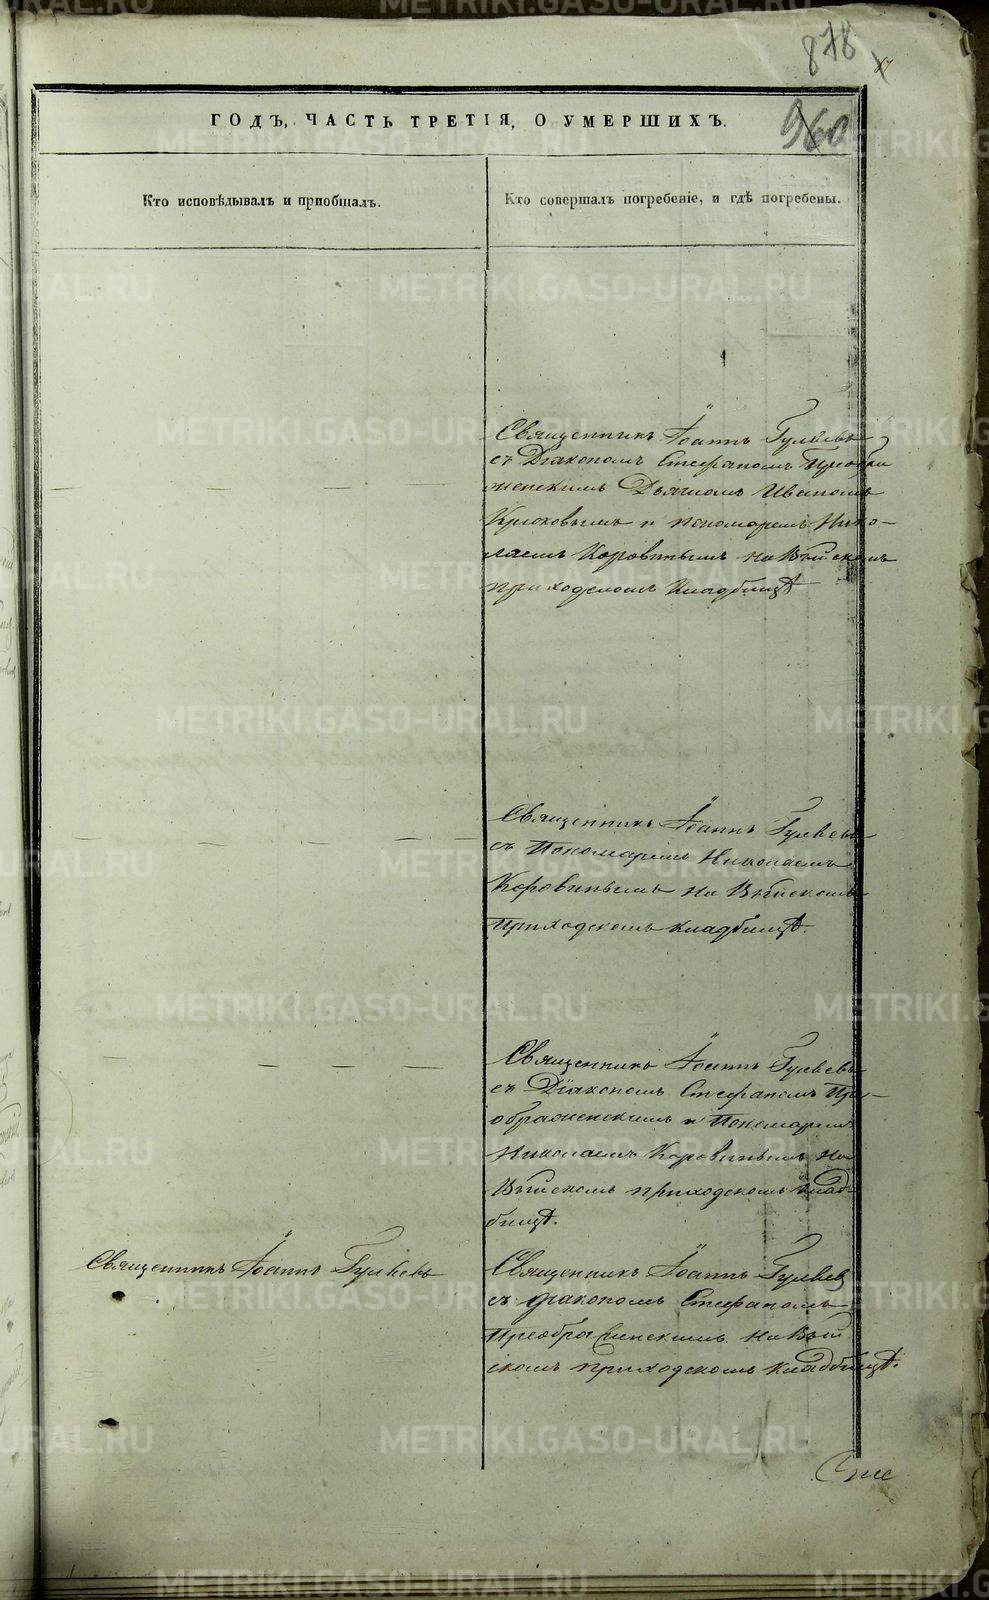 878
960
ГОДЪ, ЧАСТЬ ТРЕТІЯ, О УМЕРШИХЪ.
Кто исповѣдывалъ и пріобщалъ.
Кто совершалъ погребеніе, и гдѣ погребены.
Священникъ Іоаннъ Гуляевъ
съ Діакономъ Стефаномъ Преобра
женскимъ Дьячкомъ Иваномъ
Крюковымъ и пономаремъ Нико-
лаемъ Коровинымъ на Выйскомъ
приходскомъ Кладбищѣ
Священникъ Іоаннъ Гуляевъ
съ Пономаремъ Николаемъ
Коровинымъ на Выйскомъ
Приходскомъ кладбищѣ.
Священникъ Іоаннъ Гуляевъ
съ Діакономъ Стефаномъ Пре-
ображенскимъ и Пономаремъ
Николаемъ Коровинымъ на
Выйскомъ приходскомъ клад-
бищѣ.
Священникъ Іоаннъ Гуляевъ
Священникъ Іоаннъ Гуляевъ
съ діакономъ Стефаномъ
Преображенскимъ на Вый
скомъ приходскомъ кладбищѣ.
METRIKI.GASO-URAL.RU